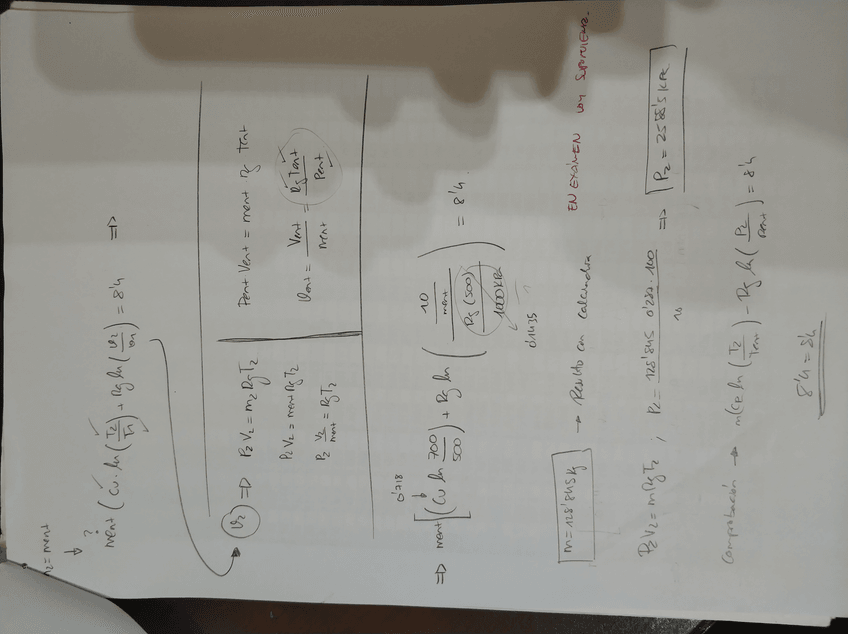 m₂ = ment
↓ ?
ment ( Cv · ln ( T₂ / Tent ) + Rg ln ( v₂ / vent ) ) = 8'4 ⇒
v₂ ⇒ P₂ V₂ = m₂ Rg T₂
P₂ V₂ = ment Rg T₂
P₂ V₂ / ment = Rg T₂
Pent Vent = ment Rg Tent
vent = Vent / ment = Rg Tent / Pent
0'718
⇒ ment [ ( Cv ln 700 / 500 ) + Rg ln ( 10 / ment / Rg (500) / 1000 KPa ) ] = 8'4
0'1435
m = 128'845 Kg → Resuelto con calculadora EN EXAMEN
P₂ V₂ = m Rg T₂ ; P₂ = 128'845 · 0'287 · 700 / 10 ⇒ P₂ = 2588'5 KPa
Comprobación → m ( Cp ln ( T₂ / Tent ) - Rg ln ( P₂ / Pent ) ) = 8'4
8'4 = 8'4